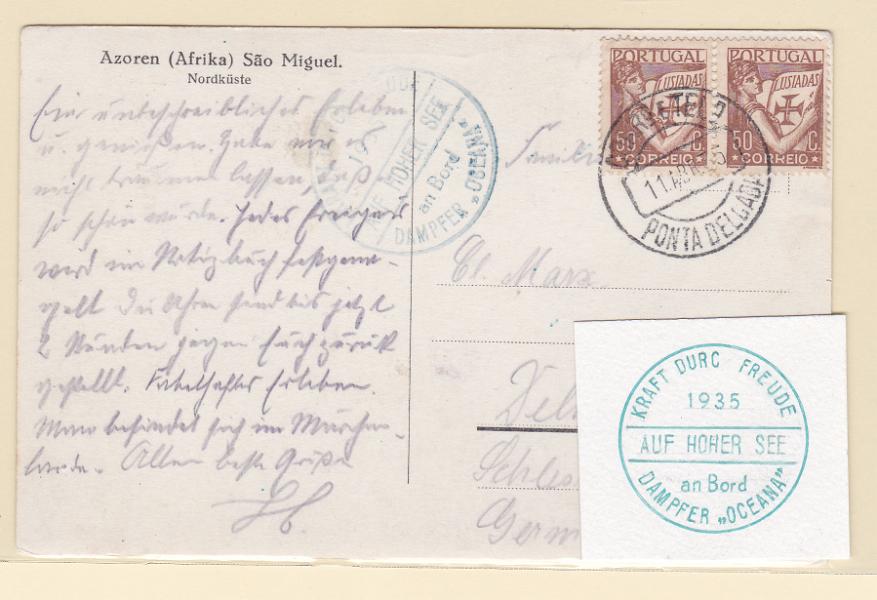 Azoren (Afrika) São Miguel.
Nordküste
Ein unbeschreibliches Erleben
u. genießen. Habe mir es
nicht träumen lassen, daß
so schön würde. Jedes Ereignis
wird im Notizbuch festgena-
gelt. Die Uhren sind bis jetzt
2 Stunden gegen Euch zurück
gestellt. Fabelhaftes Erleben.
Man befindet sich im Märchen-
lande. Allen beste Grüße
PORTUGAL
LUSIADAS
50 C.
CORREIO
PORTUGAL
LUSIADAS
50 C.
CORREIO
PONTA DELGADA
AUF HOHER SEE
an Bord
DAMPFER „OCEANA"
Familie
Cl. Marx
Germ
KRAFT DURC FREUDE
1935
AUF HOHER SEE
an Bord
DAMPFER „OCEANA"